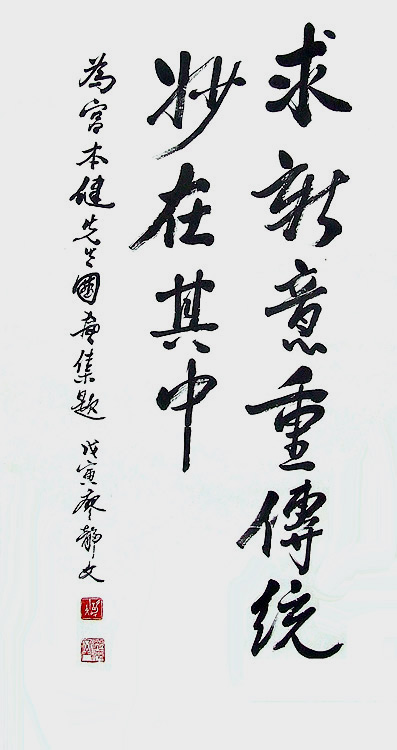 求新意重傳统
妙在其中
為宮本健先生國畫集題
戊寅廖靜文